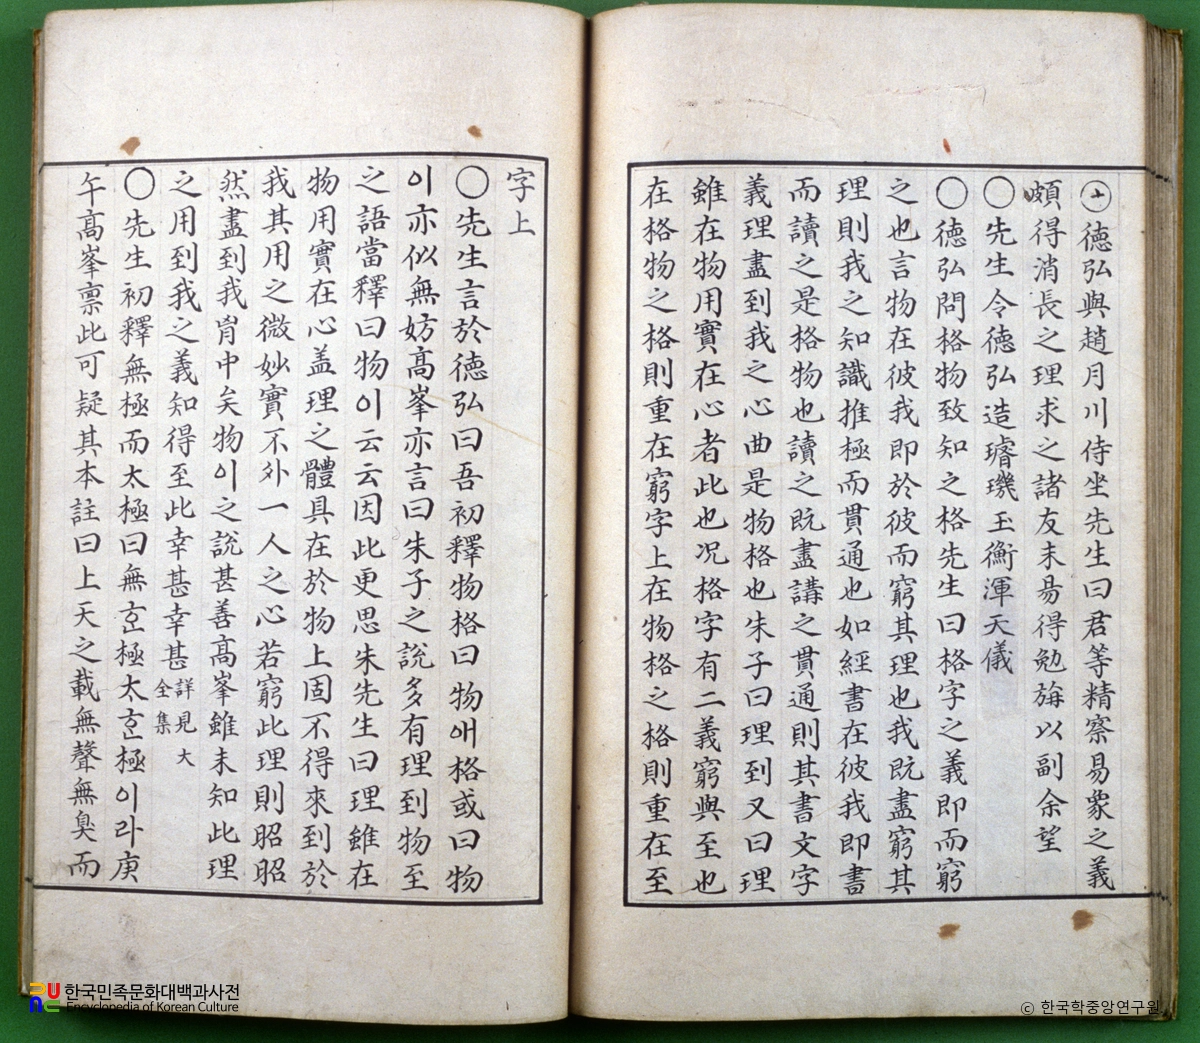 〇德弘與趙月川侍坐先生曰君等精察易象之義
頗得消長之理求之諸友未易得勉旃以副余望
〇先生令德弘造璿璣玉衡渾天儀
〇德弘問格物致知之格先生曰格字之義即而窮
之也言物在彼我即於彼而窮其理也我既盡窮其
理則我之知識推極而貫通也如經書在彼我即書
而讀之是格物也讀之既盡講之貫通則其書文字
義理盡到我之心曲是物格也朱子曰理到又曰理
雖在物用實在心者此也况格字有二義窮與至也
在格物之格則重在窮字上在物格之格則重在至
字上
〇先生言於德弘曰吾初釋物格曰物애格或曰物
이亦似無妨高峯亦言曰朱子之說多有理到物至
之語當釋曰物이云云因此更思朱先生曰理雖在
物用實在心盖理之體具在於物上固不得來到於
我其用之微妙實不外一人之心若窮此理則昭昭
然盡到我胷中矣物이之說甚善高峯雖未知此理
之用到我之義知得至此幸甚幸甚詳見大全集
〇先生初釋無極而太極曰無한極太한極이라庚
午高峯禀此可疑其本註曰上天之載無聲無臭而
한국민족문화대백과사전
Encyclopedia of Korean Culture
ⓒ 한국학중앙연구원